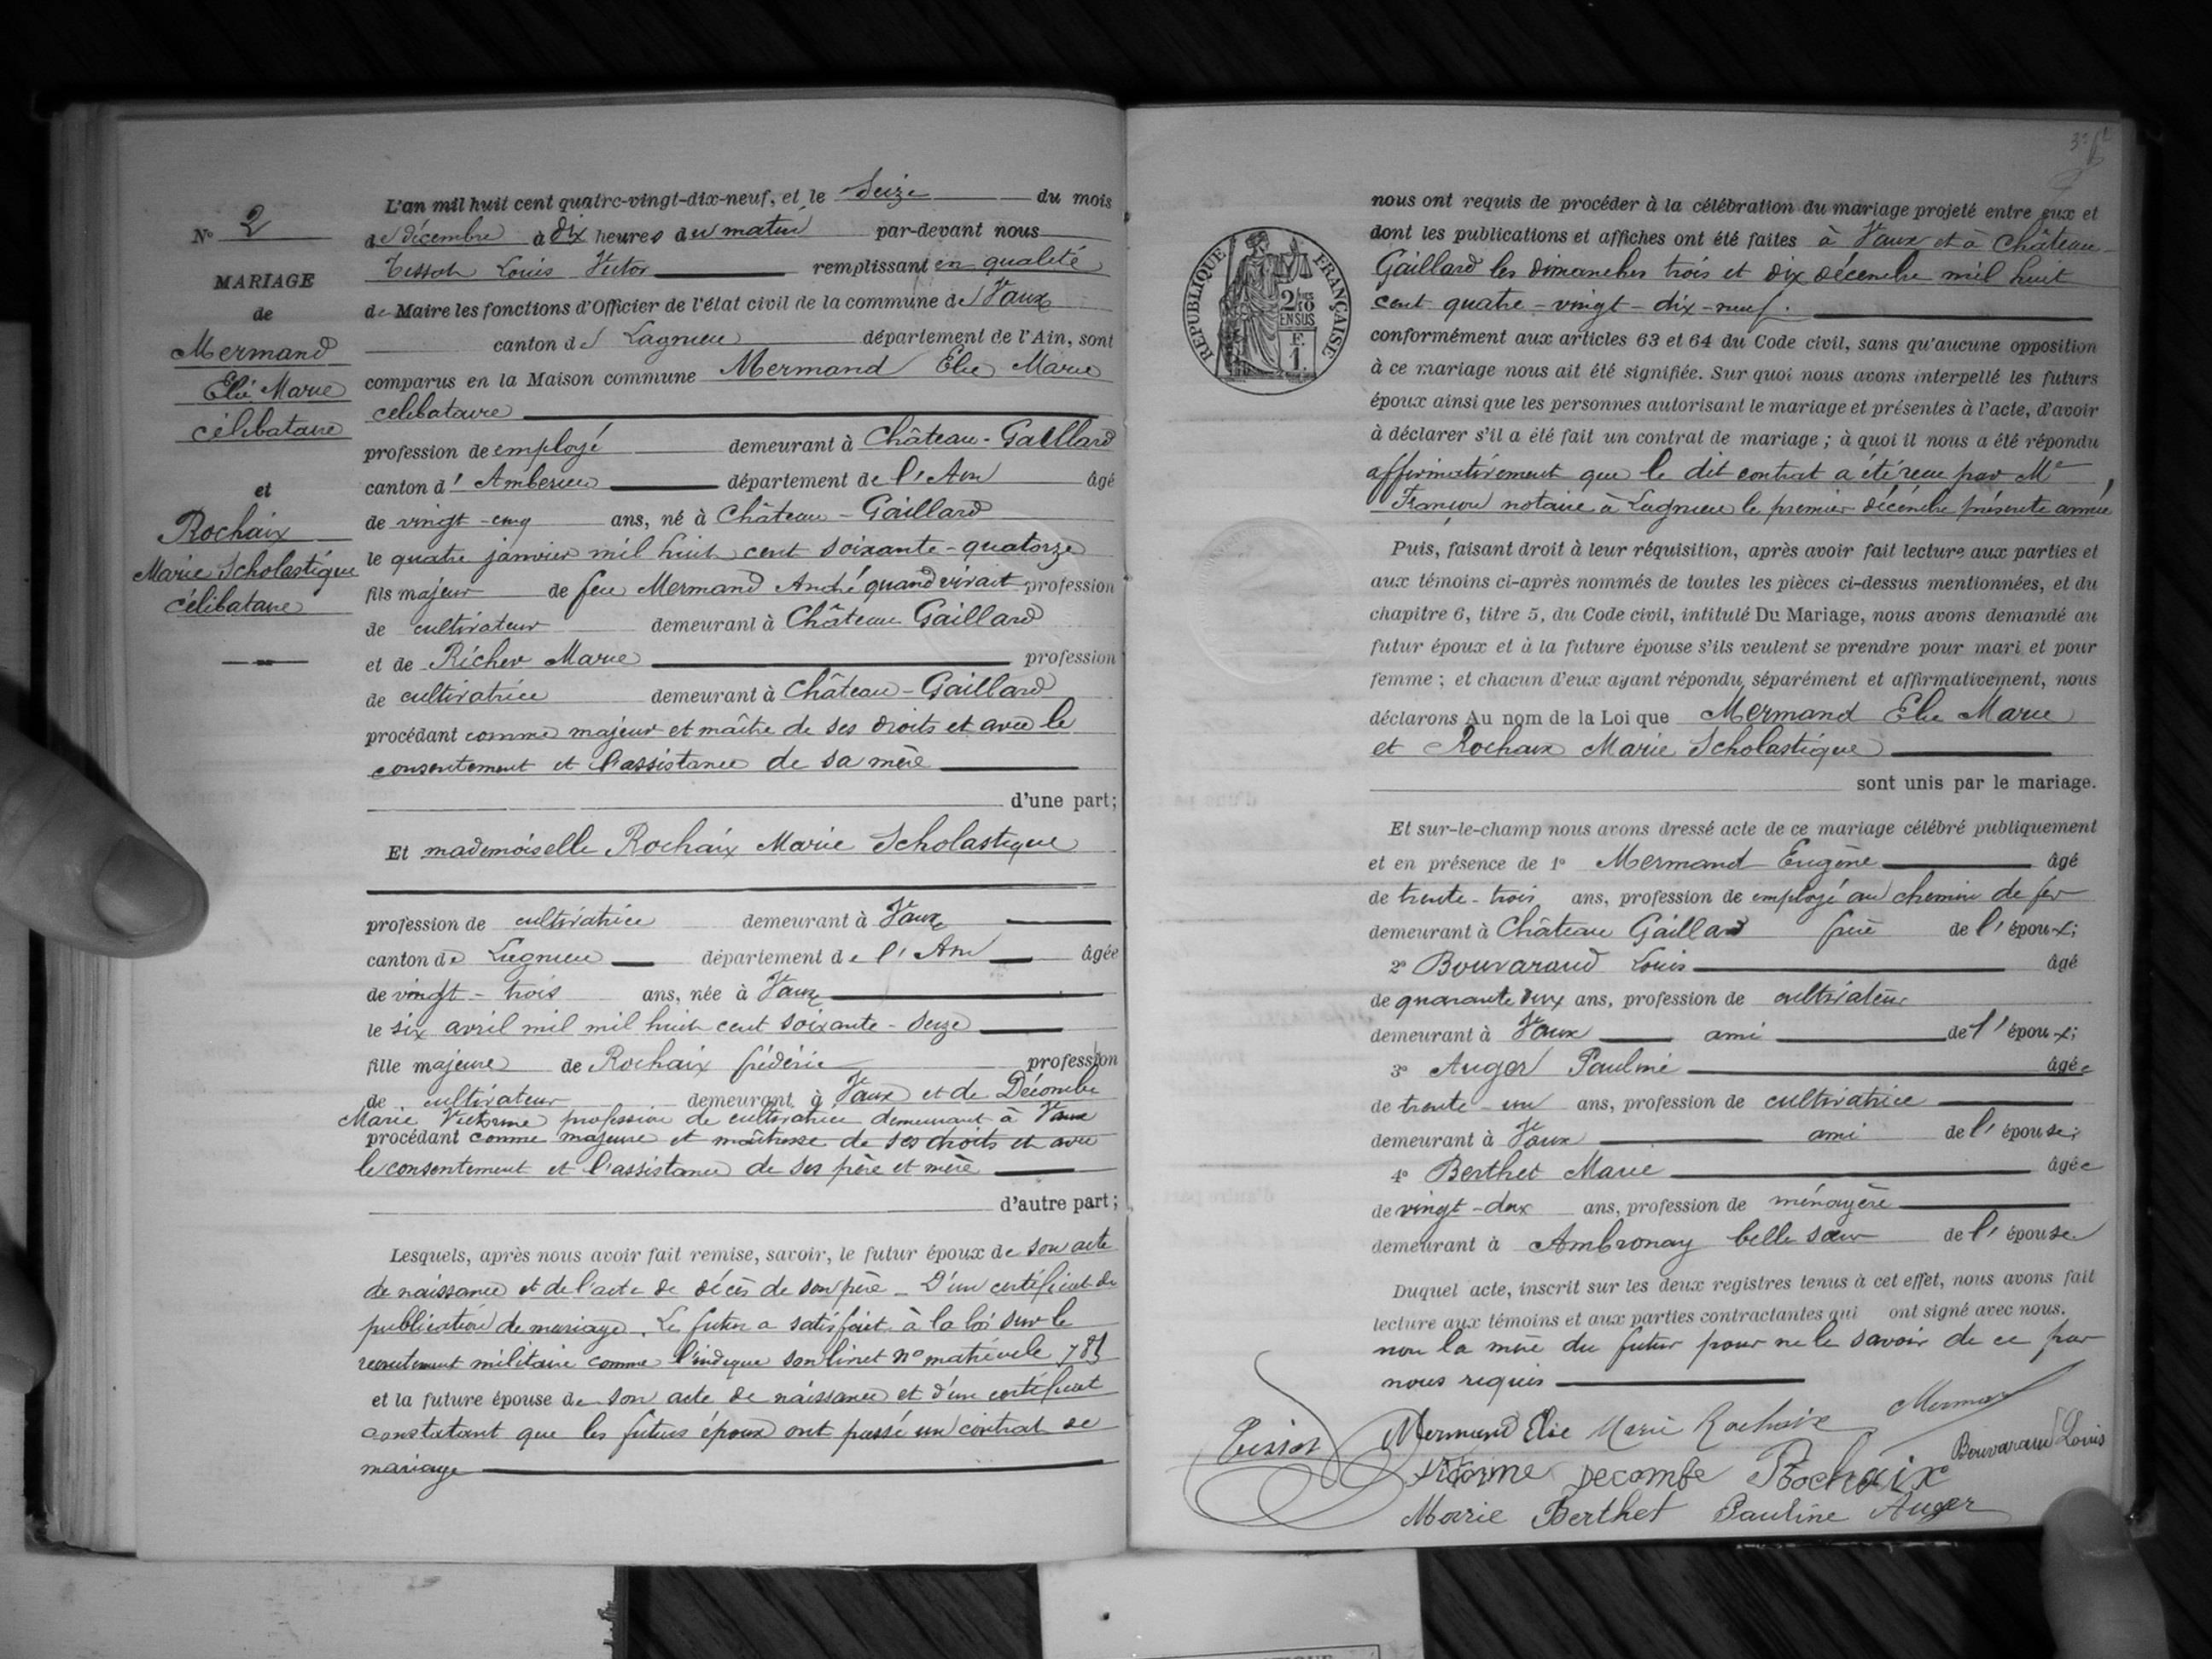 N° 2
MARIAGE
de
Mermand
Elie Marie
célibataire
et
Rochaix
Marie Scholastique
célibataire
L'an mil huit cent quatre-vingt-dix-neuf, et le seize du mois
de décembre à dix heures du matin par-devant nous
Tissot Louis Victor remplissant en qualité
de Maire les fonctions d'Officier de l'état civil de la commune de Vaux
canton de Lagnieu département de l'Ain, sont
comparus en la Maison commune Mermand Elie Marie
célibataire
profession de employé demeurant à Château-Gaillard
canton d'Ambérieu département de l'Ain âgé
de vingt-cinq ans, né à Château-Gaillard
le quatre janvier mil huit cent soixante-quatorze
fils majeur de feu Mermand André quand vivait profession
de cultivateur demeurant à Château Gaillard
et de Richer Marie profession
de cultivatrice demeurant à Château-Gaillard
procédant comme majeur et maître de ses droits et avec le
consentement et l'assistance de sa mère
d'une part;
Et mademoiselle Rochaix Marie Scholastique
profession de cultivatrice demeurant à Vaux
canton de Lagnieu département de l'Ain âgée
de vingt-trois ans, née à Vaux
le six avril mil mil huit cent soixante-seize
fille majeure de Rochaix frédéric profession
de cultivateur demeurant à Vaux et de Décombe
Marie Victorine profession de cultivatrice demeurant à Vaux
procédant comme majeure et maîtresse de ses droits et avec
le consentement et l'assistance de ses père et mère
d'autre part;
Lesquels, après nous avoir fait remise, savoir, le futur époux de son acte
de naissance et de l'acte de décès de son père - D'un certificat de
publication de mariage. Le futur a satisfait à la loi sur le
recrutement militaire comme l'indique son livret n° matricule
et la future épouse de son acte de naissance et d'un certificat
constatant que les futurs époux ont passé un contrat de
mariage
RÉPUBLIQUE FRANÇAISE
2/10
EN SUS
F.
1.
nous ont requis de procéder à la célébration du mariage projeté entre eux et
dont les publications et affiches ont été faites à Vaux et à Château
Gaillard les dimanches trois et dix décembre mil huit
cent quatre-vingt-dix-neuf.
conformément aux articles 63 et 64 du Code civil, sans qu'aucune opposition
à ce mariage nous ait été signifiée. Sur quoi nous avons interpellé les futurs
époux ainsi que les personnes autorisant le mariage et présentes à l'acte, d'avoir
à déclarer s'il a été fait un contrat de mariage ; à quoi il nous a été répondu
affirmativement que le dit contrat a été reçu par Me
notaire à Lagnieu le premier décembre présente année
Puis, faisant droit à leur réquisition, après avoir fait lecture aux parties et
aux témoins ci-après nommés de toutes les pièces ci-dessus mentionnées, et du
chapitre 6, titre 5, du Code civil, intitulé Du Mariage, nous avons demandé au
futur époux et à la future épouse s'ils veulent se prendre pour mari et pour
femme ; et chacun d'eux ayant répondu séparément et affirmativement, nous
déclarons Au nom de la Loi que Mermand Elie Marie
et Rochaix Marie Scholastique
sont unis par le mariage.
Et sur-le-champ nous avons dressé acte de ce mariage célébré publiquement
et en présence de 1° Mermand Eugène âgé
de trente-trois ans, profession de employé au chemin de fer
demeurant à Château Gaillard frère de l'époux;
2° Bouvarand Louis âgé
de quarante deux ans, profession de cultivateur
demeurant à Vaux ami de l'époux;
3° Auger Pauline âgée
de trente-un ans, profession de cultivatrice
demeurant à Vaux ami de l'épouse;
4° Berthet Marie âgée
de vingt-deux ans, profession de ménagère
demeurant à Ambronay belle sœur de l'épouse
Duquel acte, inscrit sur les deux registres tenus à cet effet, nous avons fait
lecture aux témoins et aux parties contractantes qui ont signé avec nous.
non la mère du futur pour ne le savoir de ce par
nous requis
Tissot Mermand Elie Marie Rochaix
Bouvarand Louis
Victorine Decombe Rochaix
Marie Berthet Pauline Auger